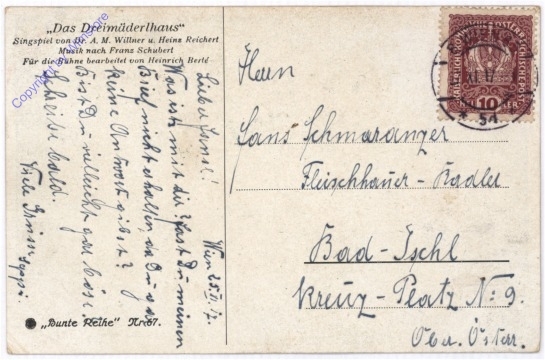 „Das Dreimäderlhaus"
Singspiel von Dr. A. M. Willner u. Heinz Reichert
Musik nach Franz Schubert
Für die Bühne bearbeitet von Heinrich Berté
Wien 25. 17.
Lieber Hansl!
Was ist mit dir? Hast Du meinen
Brief nicht erhalten da Du
keine Antwort gibst?
Bist Du vielleicht gar böse
Schreibe bald.
Viele Grüsse
„Bunte Reihe" Nr. 67.
Herrn
Hans Schmaranzer
Fleischhauer-Badler
Bad-Ischl
Kreuz-Platz No 9.
Ober. Österr.
KAISERLICHE KÖNIGLICHE ÖSTERREICHISCHE POST
10 HELLER
54
Copyright